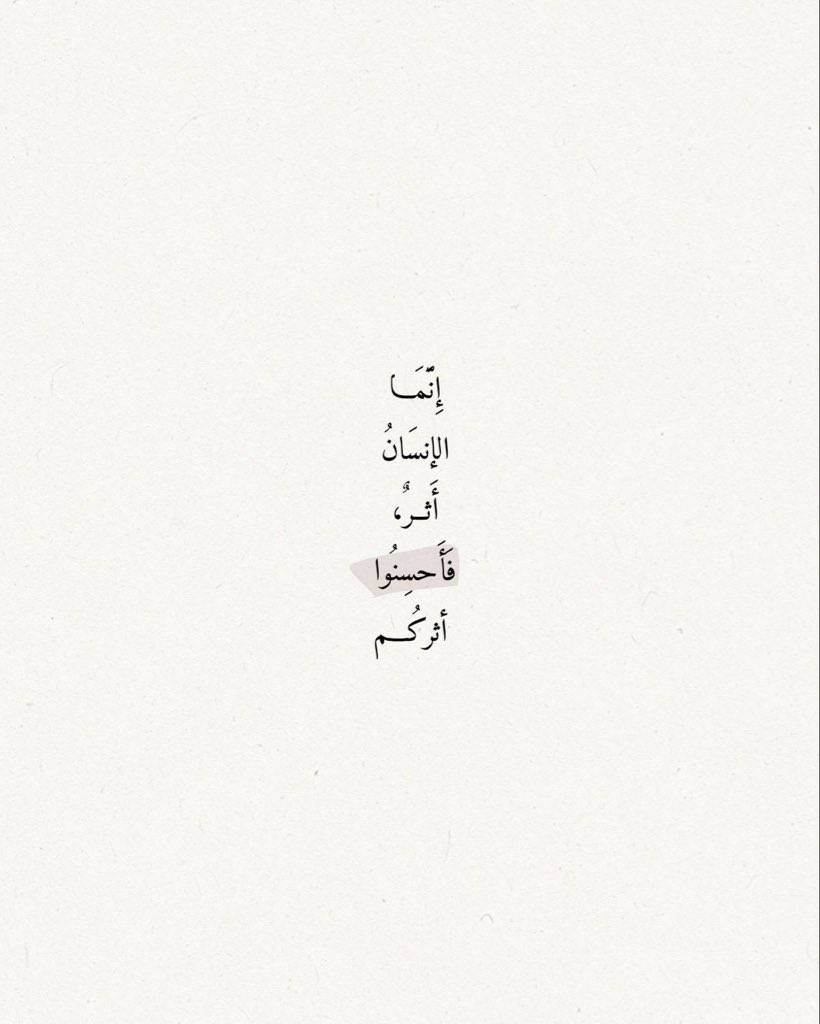 إِنّمَـــا
الإنسَانُ
أَثــرٌ،
فَأَحسِنُوا
أثركُـــم